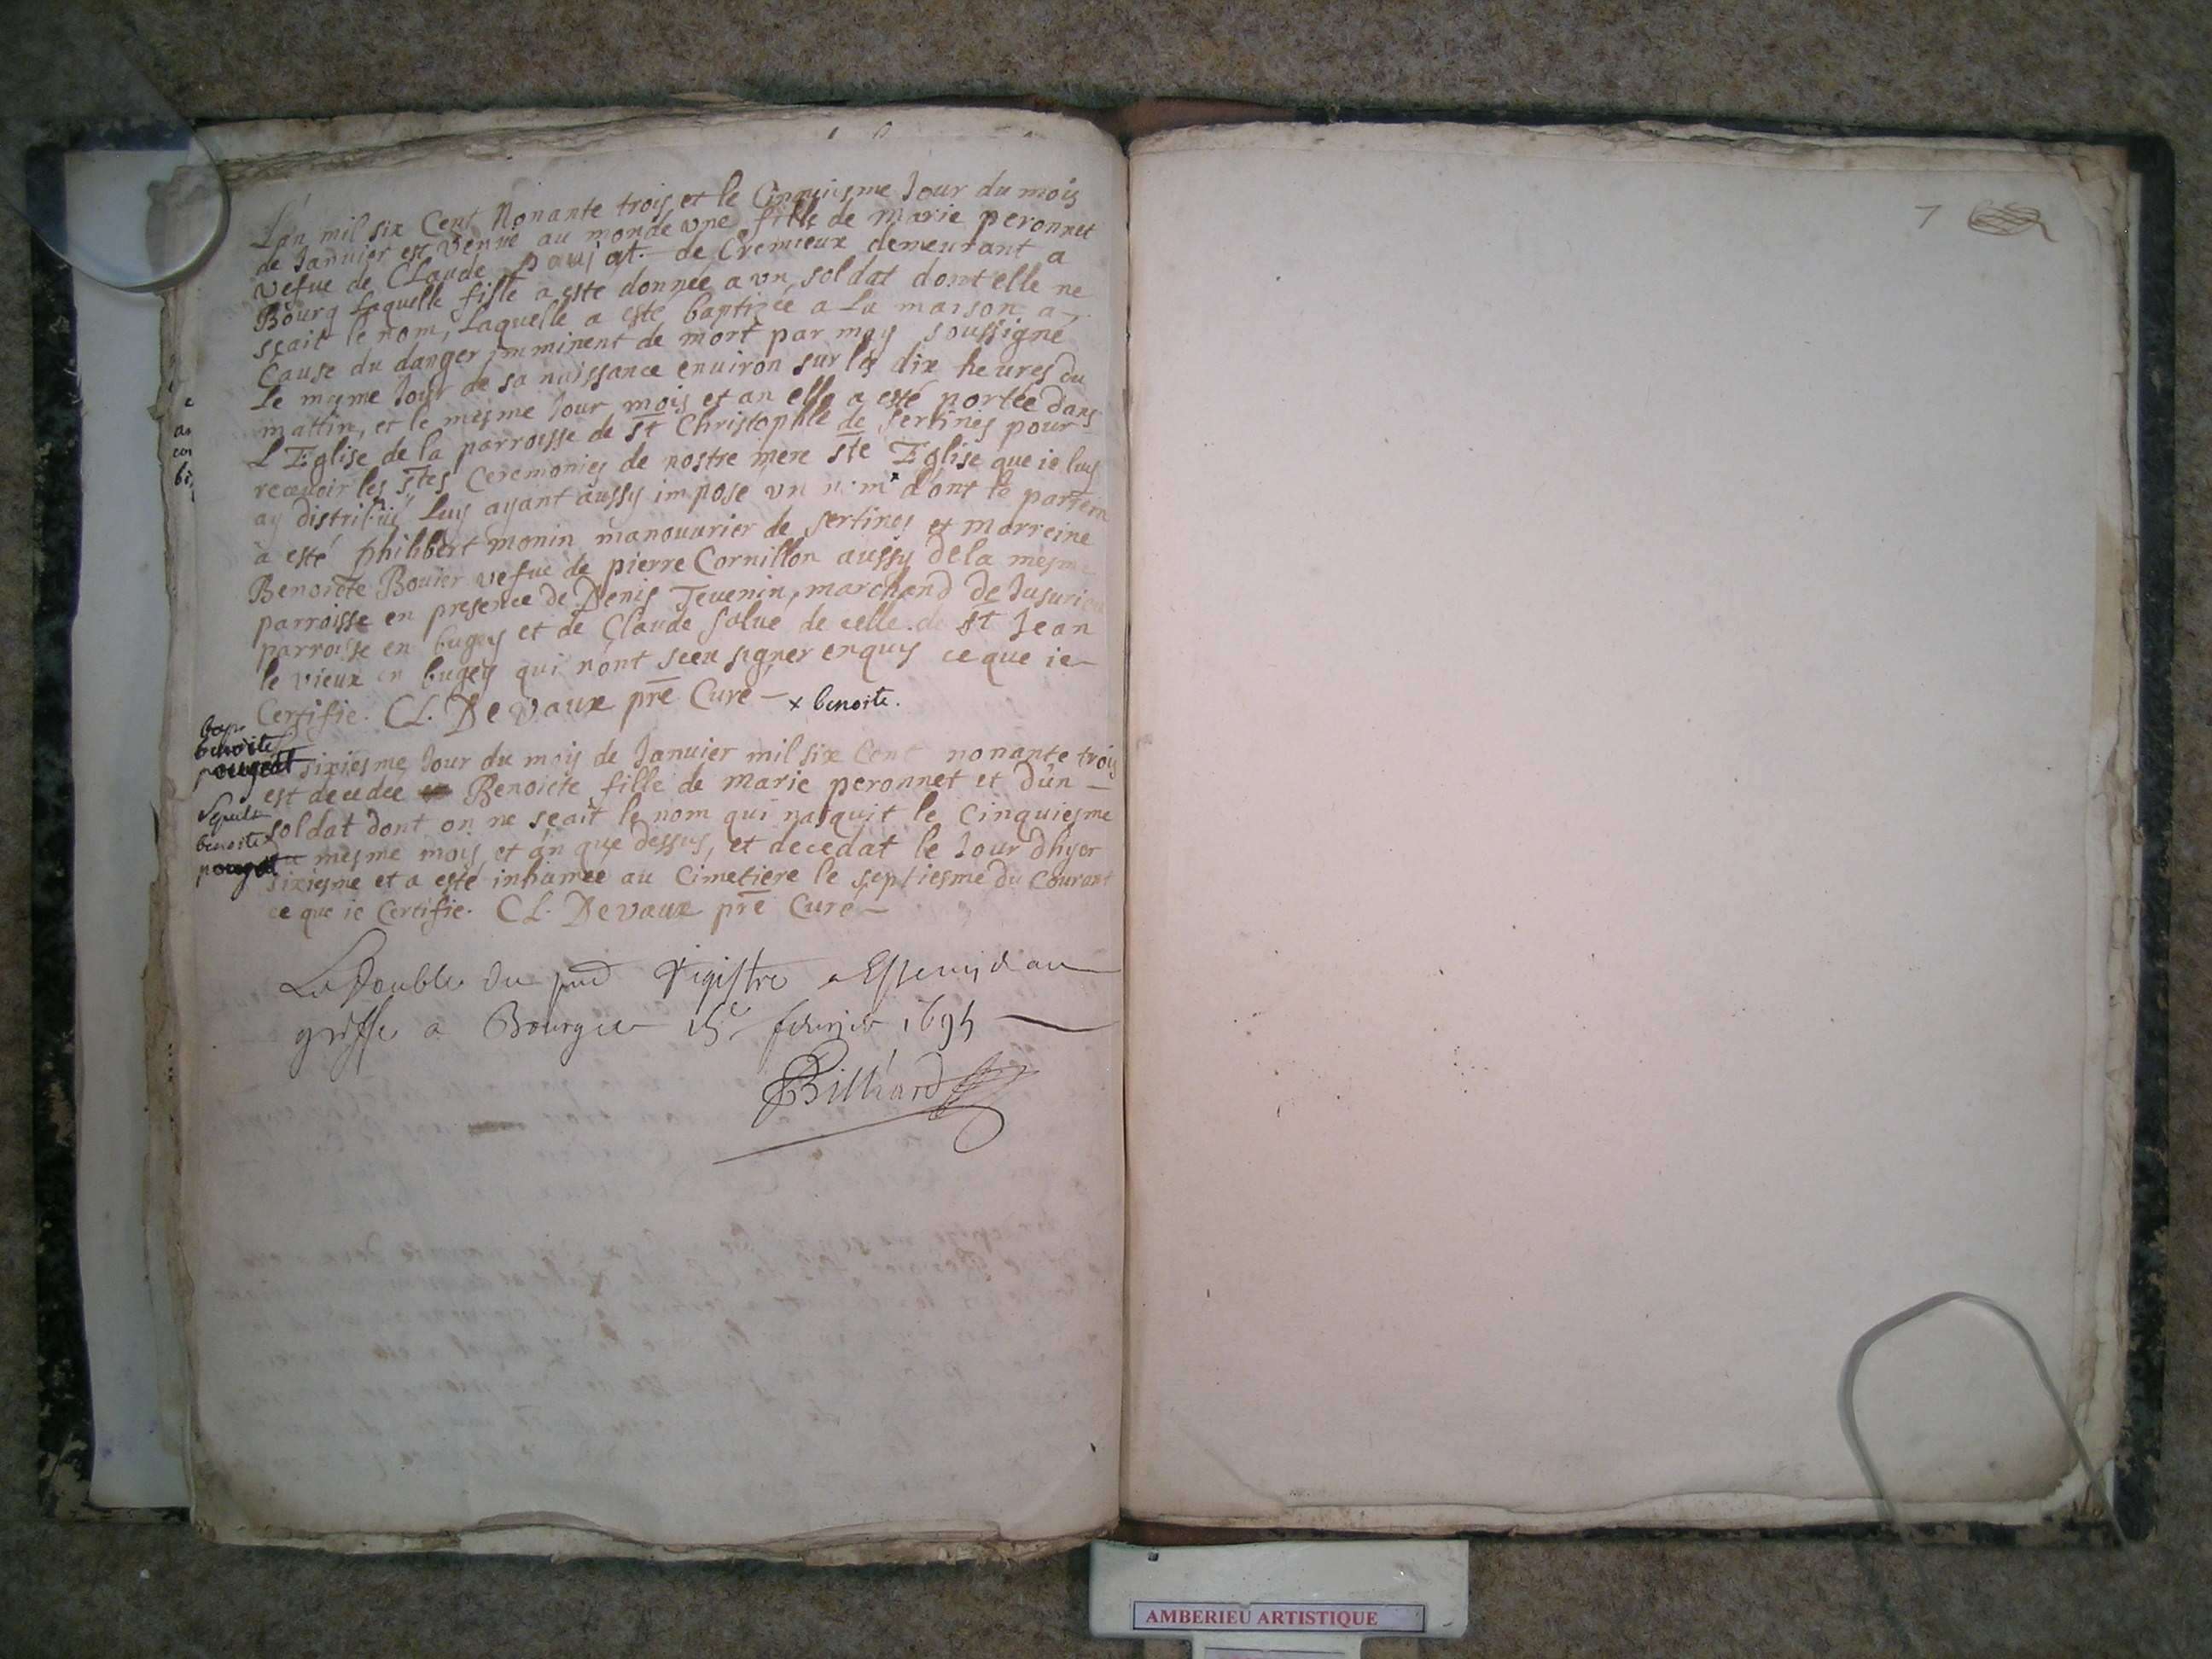 L'an mil six Cent Nonante trois et le Cinquiesme Jour du mois
de Janvier est venue au monde une fille de marie peronnet
vefue de Claude poujat de Cremieux demeurant a
Bourg laquelle fille a esté donnée a un soldat dont elle ne
sçait le nom, Laquelle a esté baptizée a la maison a
Cause du danger imminent de mort par moy soussigné
Le mesme Jour de sa naissance enuiron sur les dix heures du
mattin, et le mesme Jour mois et an elle a esté portée dans
L'Eglise de la parroisse de st Christophle de Sertines pour
receuoir les stes Ceremonies de nostre mere ste Eglise que ie luy
ay distribué luy ayant aussy imposé un nom x dont le parrein
a esté philibert monin manouurier de Sertines et marreine
Benoicte Bouier vefue de pierre Cornillon aussy de la mesme
parroisse en presence de Denis Teuenin, marchand de Jusurieu
parroisse en bugey et de Claude Salue de celle de st Jean
le vieux en bugey qui n'ont sceu signer enquis ce que ie
Certifie. CL. Devaux pre Curé x benoite.
bap.
benoite
pougeat
sixiesme Jour du mois de Janvier mil six Cent nonante trois
est decedee Benoicte fille de marie peronnet et d'un
soldat dont on ne sçait le nom qui nasquit le Cinquiesme
du mesme mois et an que dessus, et decedat le Jour dhyer
sixiesme et a esté inhumée au Cimetiere le septiesme du Courant
ce que ie Certifie. CL. Devaux pre Curé
Sepult
benoite
pougeat
Le double du pnt Registre a Esté mis au
greffe a Bourg ce fevrier
Billiard
7
AMBERIEU ARTISTIQUE